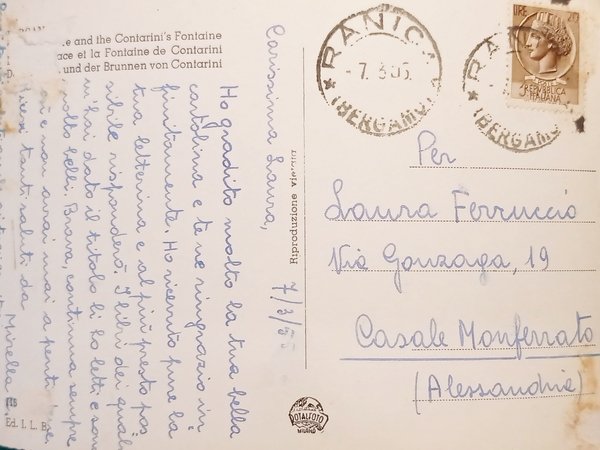 e and the Contarini's Fontaine
ace et la Fontaine de Contarini
und der Brunnen von Contarini
Carissima Laura,
7/3/55
Ho gradito molto la tua bella
cartolina e te ne ringrazio in
finitamente. Ho ricevuto pure la
tua letterina e al più presto pos
sibile risponderò. I libri dei quali
mi hai dato il titolo li ho letti e sono
molto belli. Brava, continua sempre
e non avrai mai a pent
Ricevi tanti saluti da
Mirella
Ed. I. L. B.
Riproduzione vietata
RANICA
-7.3.5
(BERGAMO)
RANIC
(BERGAMO
LIRE 20
REPVBBLICA
ITALIANA
Per
Laura Ferruccio
Via Gonzaga, 19
Casale Monferrato
(Alessandria)
ROTALFOTO
MILANO